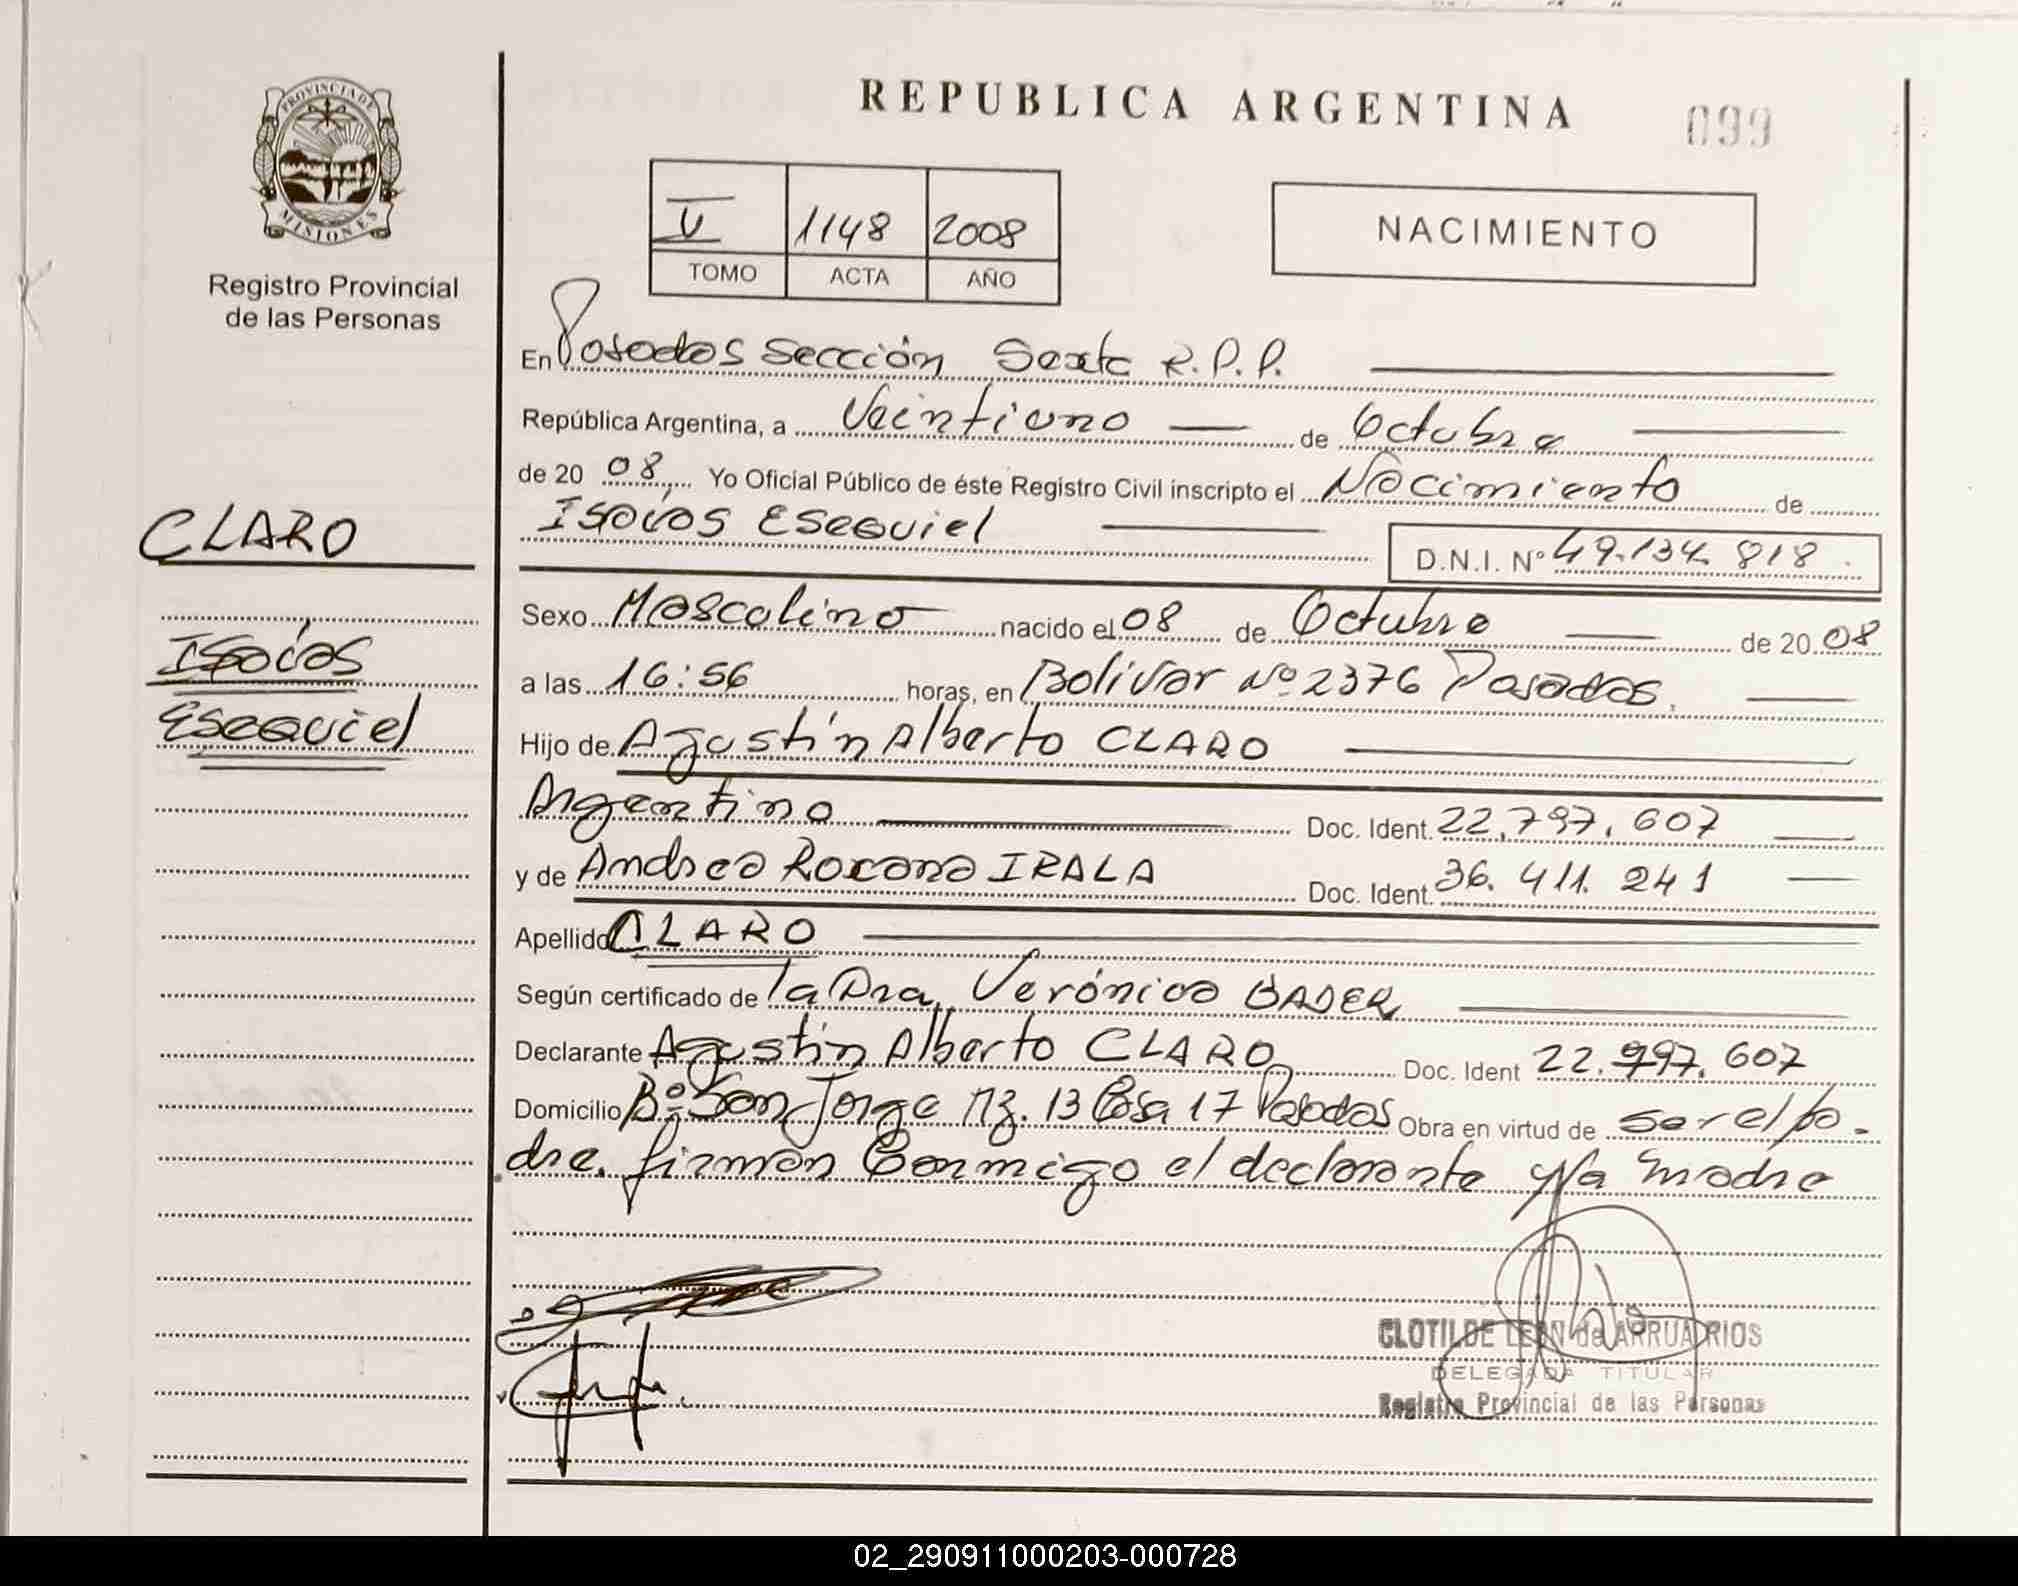 REPUBLICA ARGENTINA
099
PROVINCIA DE
MISIONES
Registro Provincial
de las Personas
V 1148 2008
TOMO ACTA AÑO
NACIMIENTO
En Posadas Sección Sexta R.P.P.
República Argentina, a Veintiuno de Octubre
de 20 08, Yo Oficial Público de éste Registro Civil inscripto el Nacimiento de
Isaías Esequiel
D.N.I. Nº 49.134.818
CLARO
Isaías
Esequiel
Sexo Masculino nacido el 08 de Octubre de 20 08
a las 16:56 horas, en Bolivar Nº 2376 Posadas.
Hijo de Agustín Alberto CLARO
Argentino Doc. Ident. 22.797.607
y de Andrea Roxana IRALA Doc. Ident. 36.411.241
Apellido CLARO
Según certificado de la Dra. Verónica BADER
Declarante Agustín Alberto CLARO Doc. Ident 22.797.607
Domicilio Bº San Jorge Mz. 13 Casa 17 Posadas Obra en virtud de ser el pa-
dre. firman Conmigo el declarante y la madre
CLOTILDE LEON de ARRUA RIOS
DELEGADA TITULAR
Registro Provincial de las Personas
02_290911000203-000728